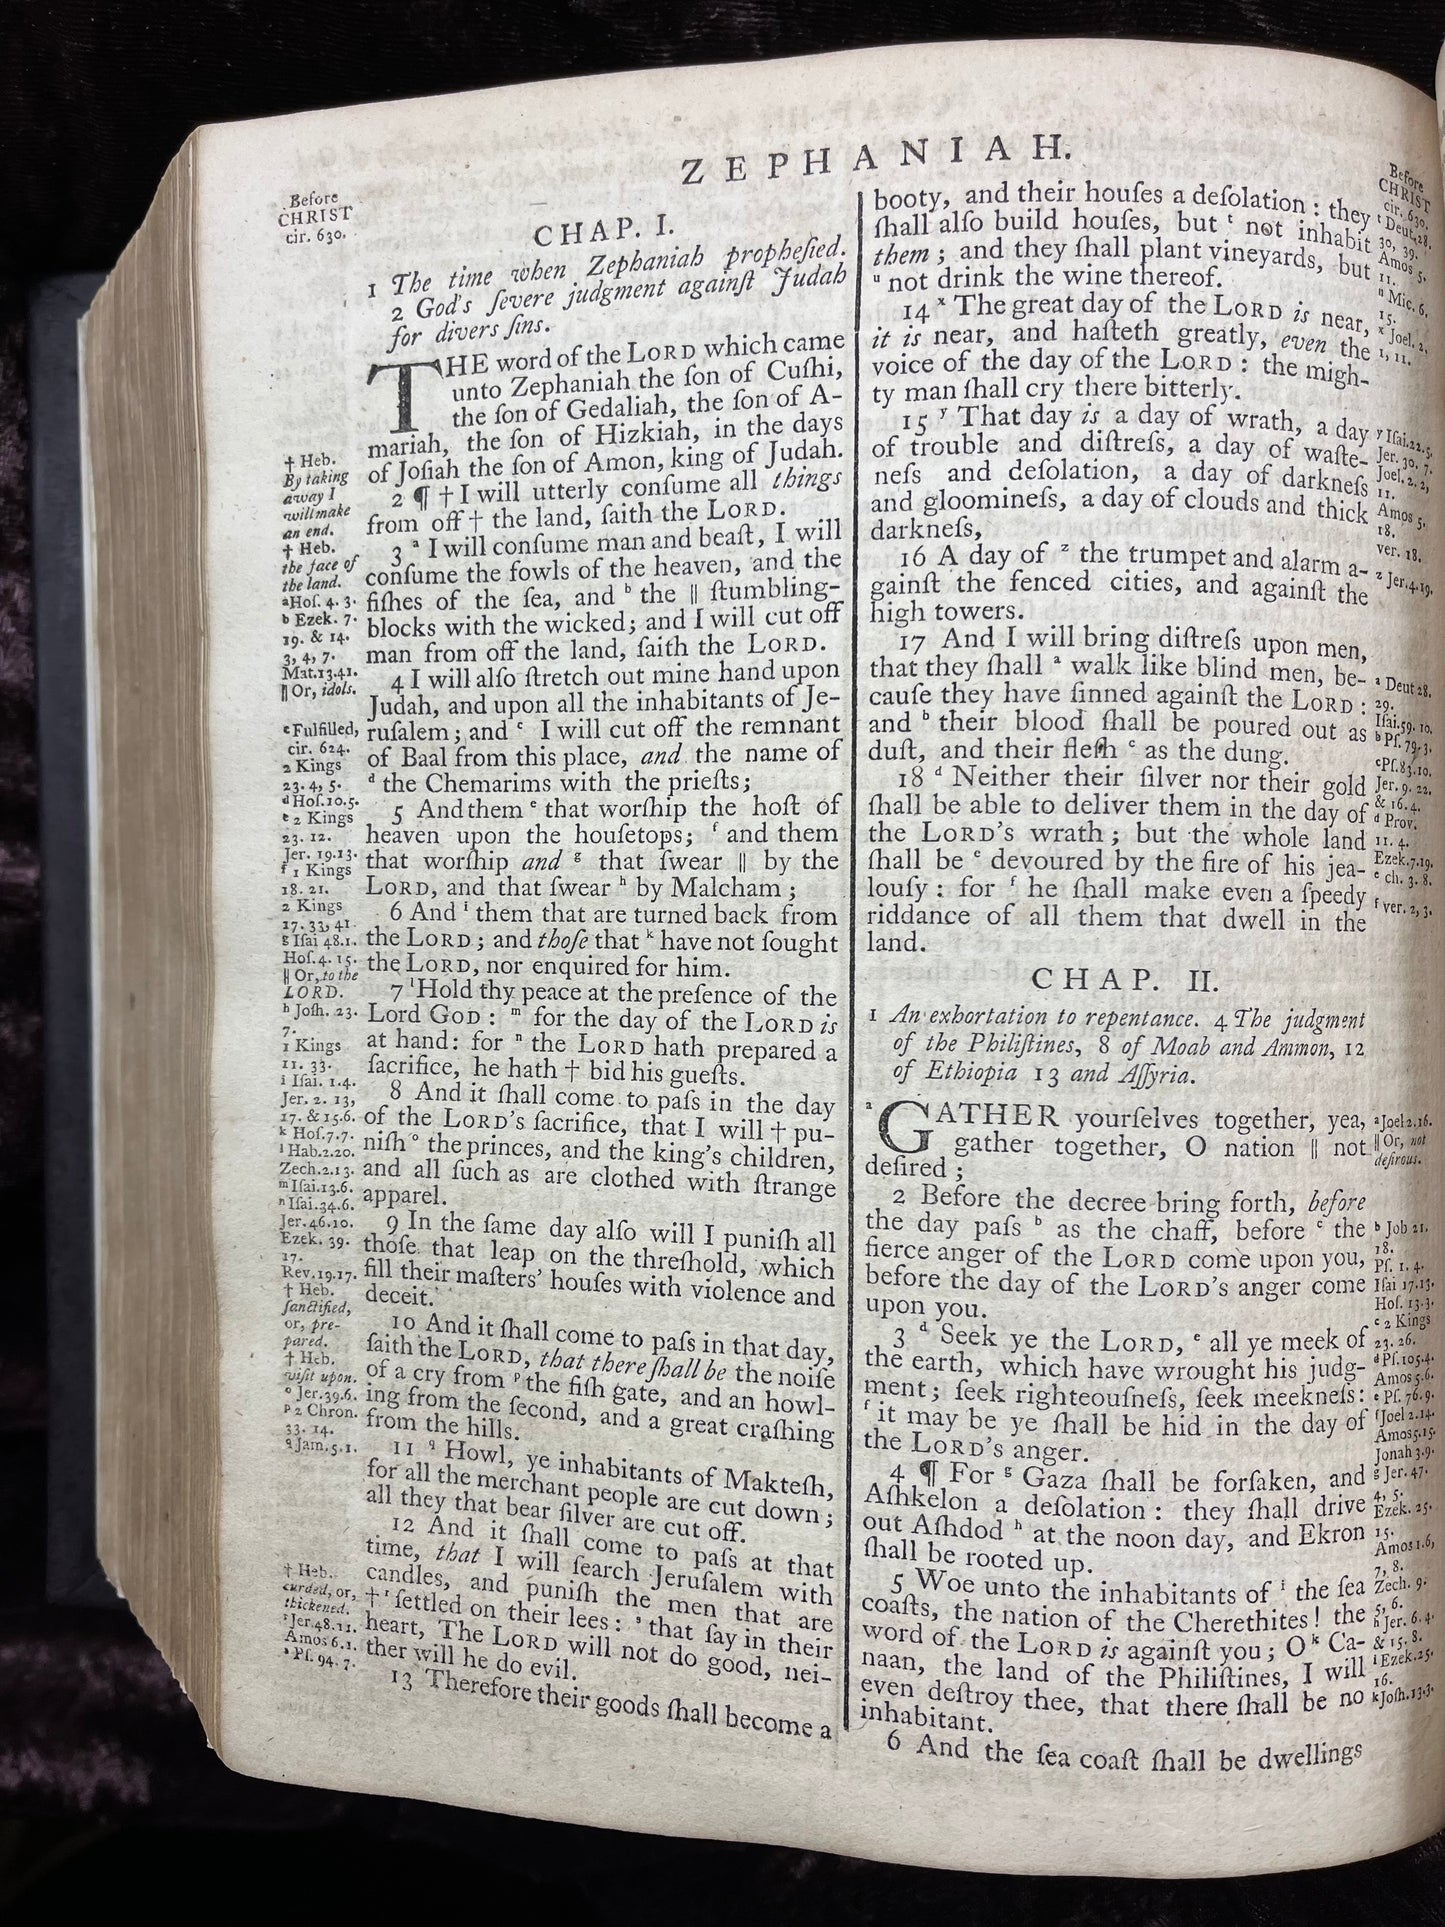 ZEPHANIAH.
Before
CHRIST
cir. 630.
CHAP. I.
1 The time when Zephaniah propheſied.
2 God's ſevere judgment againſt Judah
for divers ſins.
THE word of the LORD which came
unto Zephaniah the ſon of Cuſhi,
the ſon of Gedaliah, the ſon of A-
mariah, the ſon of Hizkiah, in the days
of Joſiah the ſon of Amon, king of Judah.
2 ¶ † I will utterly conſume all things
from off † the land, ſaith the LORD.
3 ᵃ I will conſume man and beaſt, I will
conſume the fowls of the heaven, and the
fiſhes of the ſea, and ᵇ the ‖ ſtumbling-
blocks with the wicked; and I will cut off
man from off the land, ſaith the LORD.
4 I will alſo ſtretch out mine hand upon
Judah, and upon all the inhabitants of Je-
ruſalem; and ᶜ I will cut off the remnant
of Baal from this place, and the name of
ᵈ the Chemarims with the prieſts;
5 And them ᵉ that worſhip the hoſt of
heaven upon the houſetops; ᶠ and them
that worſhip and ᵍ that ſwear ‖ by the
LORD, and that ſwear ʰ by Malcham;
6 And ⁱ them that are turned back from
the LORD; and thoſe that ᵏ have not ſought
the LORD, nor enquired for him.
7 ˡ Hold thy peace at the preſence of the
Lord GOD: ᵐ for the day of the LORD is
at hand: for ⁿ the LORD hath prepared a
ſacrifice, he hath † bid his gueſts.
8 And it ſhall come to paſs in the day
of the LORD's ſacrifice, that I will † pu-
niſh ᵒ the princes, and the king's children,
and all ſuch as are clothed with ſtrange
apparel.
9 In the ſame day alſo will I puniſh all
thoſe that leap on the threſhold, which
fill their maſters' houſes with violence and
deceit.
10 And it ſhall come to paſs in that day,
ſaith the LORD, that there ſhall be the noiſe
of a cry from ᵖ the fiſh gate, and an howl-
ing from the ſecond, and a great craſhing
from the hills.
11 ᑫ Howl, ye inhabitants of Makteſh,
for all the merchant people are cut down;
all they that bear ſilver are cut off.
12 And it ſhall come to paſs at that
time, that I will ſearch Jeruſalem with
candles, and puniſh the men that are
† ʳ ſettled on their lees: ˢ that ſay in their
heart, The LORD will not do good, nei-
ther will he do evil.
13 Therefore their goods ſhall become a
† Heb.
By taking
away I
will make
an end.
† Heb.
the face of
the land.
ᵃ Hoſ. 4. 3.
ᵇ Ezek. 7.
19. & 14.
3, 4, 7.
Mat. 13.41.
‖ Or, idols.
ᶜ Fulfilled,
cir. 624.
2 Kings
23. 4, 5.
ᵈ Hoſ. 10. 5.
ᵉ 2 Kings
23. 12.
Jer. 19.13.
ᶠ 1 Kings
18. 21.
2 Kings
17. 33, 41.
ᵍ Iſai 48.1.
Hoſ. 4. 15.
‖ Or, to the
LORD.
ʰ Joſh. 23.
7.
1 Kings
11. 33.
ⁱ Iſai. 1. 4.
Jer. 2. 13,
17. & 15.6.
ᵏ Hoſ. 7.7.
ˡ Hab. 2.20.
Zech. 2.13.
ᵐ Iſai. 13.6.
ⁿ Iſai. 34.6.
Jer. 46.10.
Ezek. 39.
17.
Rev. 19.17.
† Heb.
ſanctified,
or, pre-
pared.
† Heb.
viſit upon.
ᵒ Jer. 39.6.
ᵖ 2 Chron.
33. 14.
ᑫ Jam. 5. 1.
† Heb.
curded, or,
thickened.
ʳ Jer. 48.11.
Amos 6.1.
ˢ Pſ. 94. 7.
booty, and their houſes a deſolation: they
ſhall alſo build houſes, but ᵗ not inhabit
them; and they ſhall plant vineyards, but
ᵘ not drink the wine thereof.
14 ˣ The great day of the LORD is near,
it is near, and haſteth greatly, even the
voice of the day of the LORD: the migh-
ty man ſhall cry there bitterly.
15 ʸ That day is a day of wrath, a day
of trouble and diſtreſs, a day of waſte-
neſs and deſolation, a day of darkneſs
and gloomineſs, a day of clouds and thick
darkneſs,
16 A day of ᶻ the trumpet and alarm a-
gainſt the fenced cities, and againſt the
high towers.
17 And I will bring diſtreſs upon men,
that they ſhall ᵃ walk like blind men, be-
cauſe they have ſinned againſt the LORD:
and ᵇ their blood ſhall be poured out as
duſt, and their fleſh ᶜ as the dung.
18 ᵈ Neither their ſilver nor their gold
ſhall be able to deliver them in the day of
the LORD's wrath; but the whole land
ſhall be ᵉ devoured by the fire of his jea-
louſy: for ᶠ he ſhall make even a ſpeedy
riddance of all them that dwell in the
land.
CHAP. II.
1 An exhortation to repentance. 4 The judgment
of the Philiſtines, 8 of Moab and Ammon, 12
of Ethiopia 13 and Aſſyria.
ᵃ GATHER yourſelves together, yea,
gather together, O nation ‖ not
deſired;
2 Before the decree bring forth, before
the day paſs ᵇ as the chaff, before ᶜ the
fierce anger of the LORD come upon you,
before the day of the LORD's anger come
upon you.
3 ᵈ Seek ye the LORD, ᵉ all ye meek of
the earth, which have wrought his judg-
ment; ſeek righteouſneſs, ſeek meekneſs:
ᶠ it may be ye ſhall be hid in the day of
the LORD's anger.
4 ¶ For ᵍ Gaza ſhall be forſaken, and
Aſhkelon a deſolation: they ſhall drive
out Aſhdod ʰ at the noon day, and Ekron
ſhall be rooted up.
5 Woe unto the inhabitants of ⁱ the ſea
coaſts, the nation of the Cherethites! the
word of the LORD is againſt you; O ᵏ Ca-
naan, the land of the Philiſtines, I will
even deſtroy thee, that there ſhall be no
inhabitant.
6 And the ſea coaſt ſhall be dwellings
Before
CHRIST
cir. 630.
ᵗ Deut. 28.
30, 39.
Amos 5.
11.
ᵘ Mic. 6.
15.
ˣ Joel. 2.
1, 11.
ʸ Iſai. 22. 5.
Jer. 30. 7.
Joel. 2. 2,
11.
Amos 5.
18.
ver. 18.
ᶻ Jer. 4. 19.
ᵃ Deut 28.
29.
Iſai. 59. 10.
ᵇ Pſ. 79. 3.
ᶜ Pſ. 83. 10.
Jer. 9. 22.
& 16. 4.
ᵈ Prov.
11. 4.
Ezek. 7.19.
ᵉ ch. 3. 8.
ᶠ ver. 2, 3.
ᵃ Joel 2. 16.
‖ Or, not
deſirous.
ᵇ Job 21.
18.
Pſ. 1. 4.
Iſai 17.13.
Hoſ. 13. 3.
ᶜ 2 Kings
23. 26.
ᵈ Pſ. 105.4.
Amos 5.6.
ᵉ Pſ. 76. 9.
ᶠ Joel 2.14.
Amos 5.15.
Jonah 3.9.
ᵍ Jer. 47.
4, 5.
Ezek. 25.
15.
Amos 1.6,
7, 8.
Zech. 9.
5, 6.
ʰ Jer. 6. 4.
& 15. 8.
ⁱ Ezek. 25.
16.
ᵏ Joſh. 13.3.